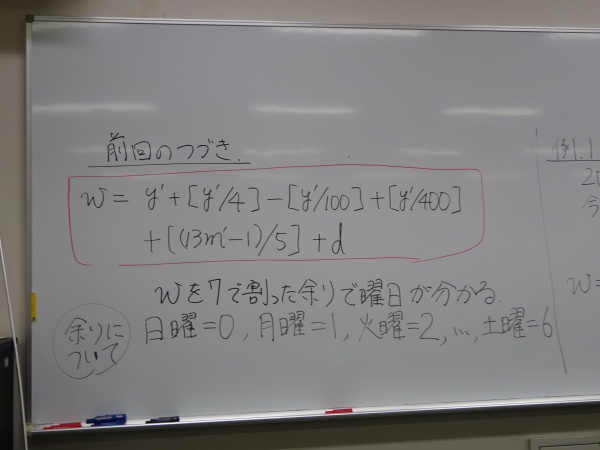 前回のつづき.
w = y' + [y'/4] - [y'/100] + [y'/400]
+ [(13m'-1)/5] + d
wを7で割った余りで曜日が分かる.
余りに
ついて
日曜=0, 月曜=1, 火曜=2, …, 土曜=6
例.1
20
今
w=